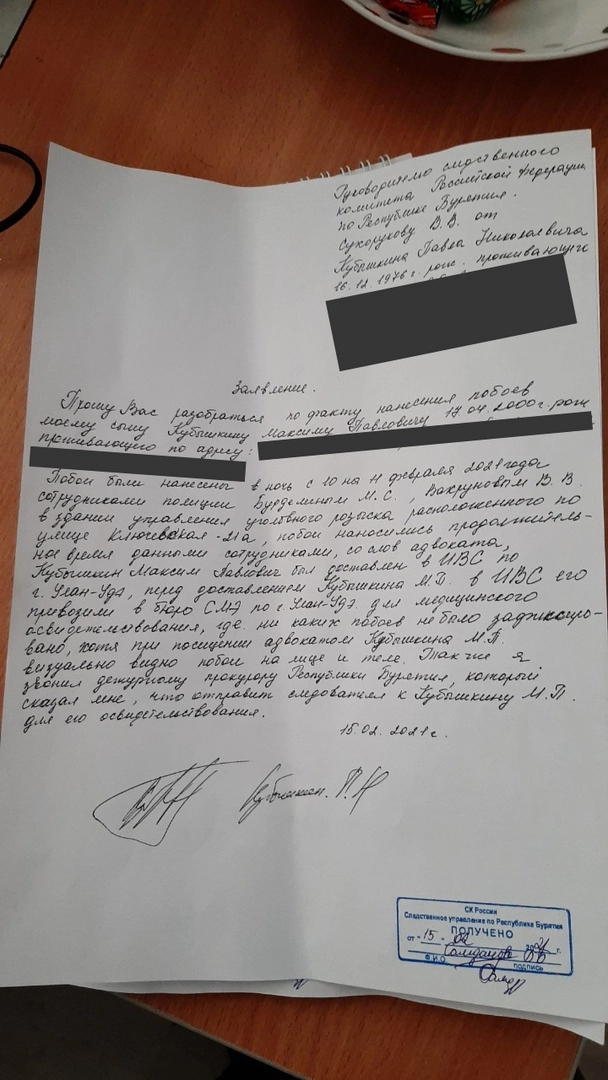 Руководителю следственного
комитета Российской Федерации
по Республике Бурятия.
Сухорукову В.В. от
Кубышкина Павла Николаевича
16.12.1976 г. рож. проживающего
Заявление.
Прошу Вас разобраться по факту нанесения побоев
моему сыну Кубышкину Максиму Павловичу 17.04.2000г. рож
проживающего по адресу:
Побои были нанесены в ночь с 10 на 11 февраля 2021 года
сотрудниками полиции М.С., В.В.
в здании управления уголовного розыска расположенного по
улице Ключевская-21а, побои наносились продолжитель-
ное время данными сотрудниками, со слов адвоката,
Кубышкин Максим Павлович был доставлен в ИВС по
г. Улан-Удэ, перед доставлением Кубышкина М.П. в ИВС его
привозили в бюро СМЭ по г. Улан-Удэ для медицинского
освидетельствования, где ни каких побоев не было
вано, хотя при посещении адвокатом Кубышкина М.П.
визуально видно побои на лице и теле. Так же я
звонил дежурному прокурору Республики Бурятия, который
сказал мне, что отправит следователя к Кубышкину М.П.
для его освидетельствования.
15.02.2021г.
Кубышкин П.Н
СК России
Следственное управление по Республике Бурятия
ПОЛУЧЕНО
от -15- 02 2021 г.
Ф.И.О. подпись